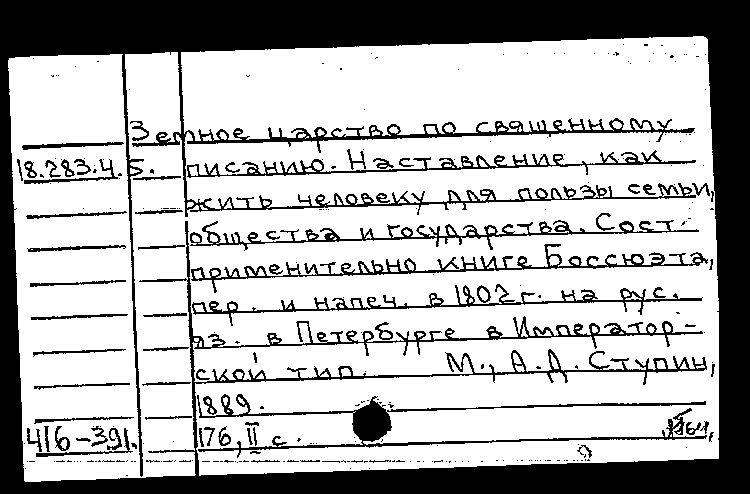 Земное царство по священному
18.283.4.5. писанию. Наставление, как
жить человеку для пользы семьи,
общества и государства. Сост.
применительно книге Боссюэта,
пер. и напеч. в 1802 г. на рус.
яз. в Петербурге в Император-
ской тип. М., А.Д. Ступин,
1889.
416-391. 176, II с.